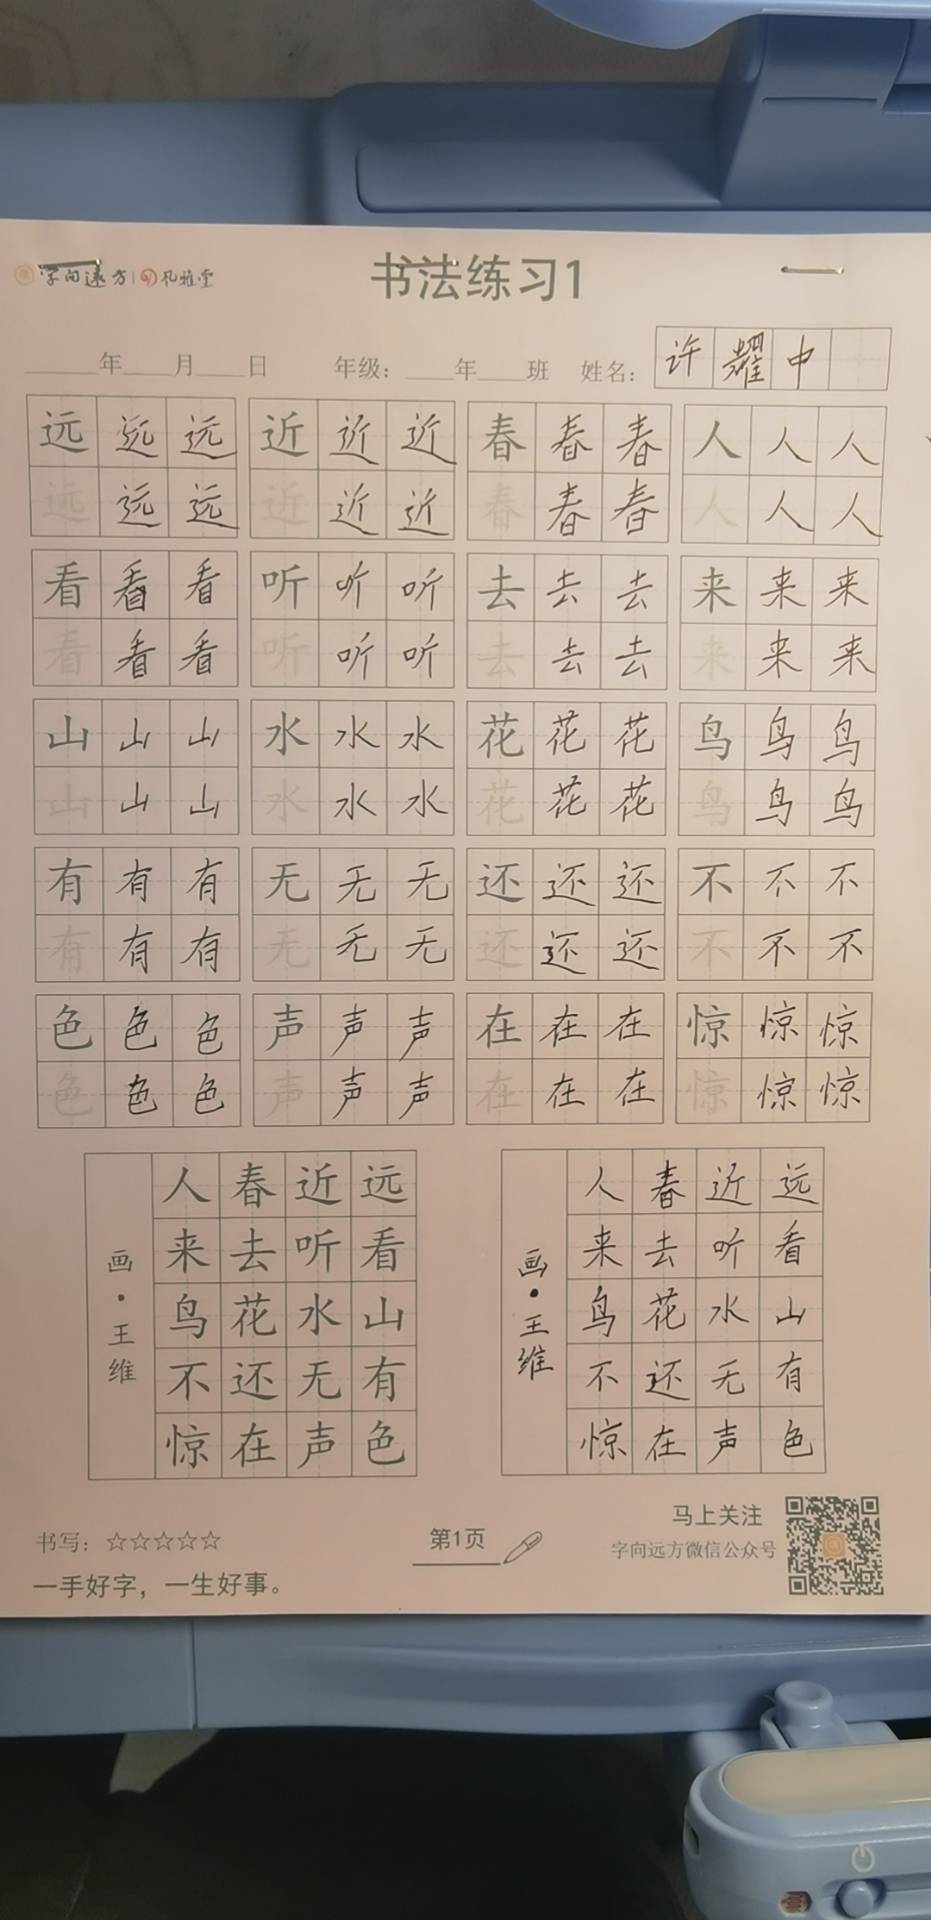 字向远方 | 孔雅堂
书法练习1
年 月 日 年级： 年 班 姓名： 许耀中
远远远 近近近 春春春 人人人
远远远 近近近 春春春 人人人
看看看 听听听 去去去 来来来
看看看 听听听 去去去 来来来
山山山 水水水 花花花 鸟鸟鸟
山山山 水水水 花花花 鸟鸟鸟
有有有 无无无 还还还 不不不
有有有 无无无 还还还 不不不
色色色 声声声 在在在 惊惊惊
色色色 声声声 在在在 惊惊惊
远看山有色
近听水无声
春去花还在
人来鸟不惊
画·王维
远看山有色
近听水无声
春去花还在
人来鸟不惊
画·王维
书写：☆☆☆☆☆
一手好字，一生好事。
第1页
马上关注
字向远方微信公众号